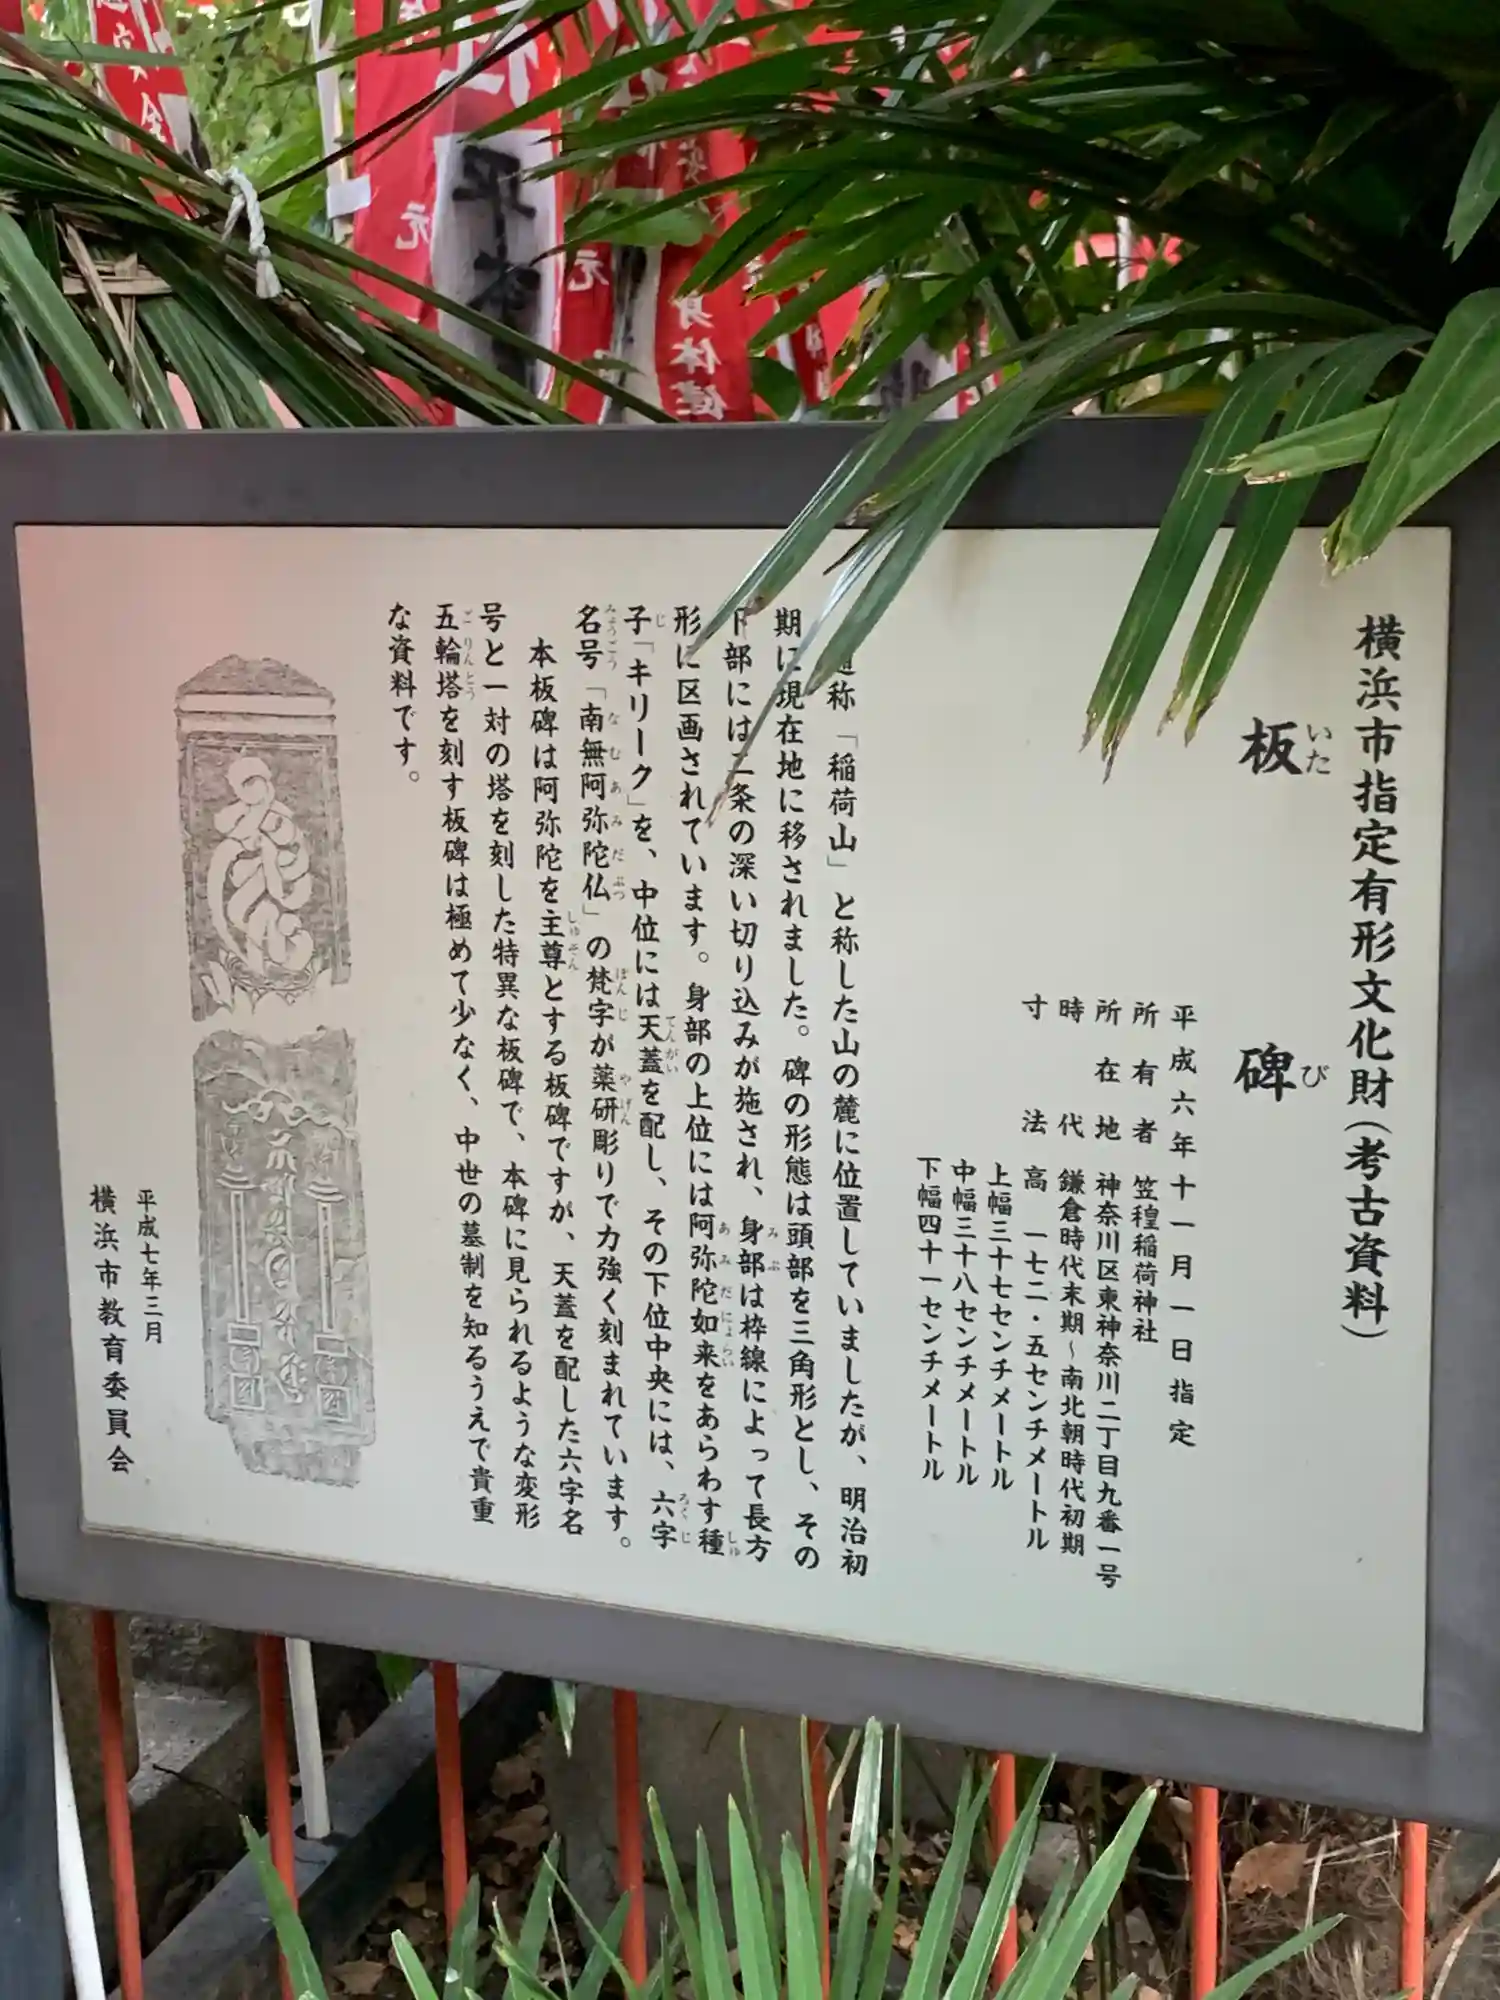 横浜市指定有形文化財(考古資料)
板碑
いた び
平成六年十一月一日指定
所有者 笠䅣稲荷神社
所在地 神奈川区東神奈川二丁目九番一号
時代 鎌倉時代末期~南北朝時代初期
寸法 高 一七二・五センチメートル
上幅三十七センチメートル
中幅三十八センチメートル
下幅四十一センチメートル
通称「稲荷山」と称した山の麓に位置していましたが、明治初
期に現在地に移されました。碑の形態は頭部を三角形とし、その
下部には二条の深い切り込みが施され、身部は枠線によって長方
形に区画されています。身部の上位には阿弥陀如来をあらわす種
子「キリーク」を、中位には天蓋を配し、その下位中央には、六字
名号「南無阿弥陀仏」の梵字が薬研彫りで力強く刻まれています。
本板碑は阿弥陀を主尊とする板碑ですが、天蓋を配した六字名
号と一対の塔を刻した特異な板碑で、本碑に見られるような変形
五輪塔を刻す板碑は極めて少なく、中世の墓制を知るうえで貴重
な資料です。
平成七年三月
横浜市教育委員会
平
元
元
身体健